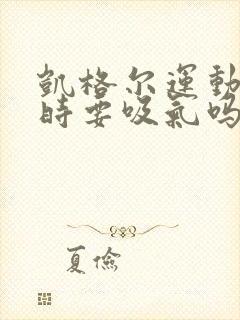 凯格尔運動
時要吸氣吗
夏儉